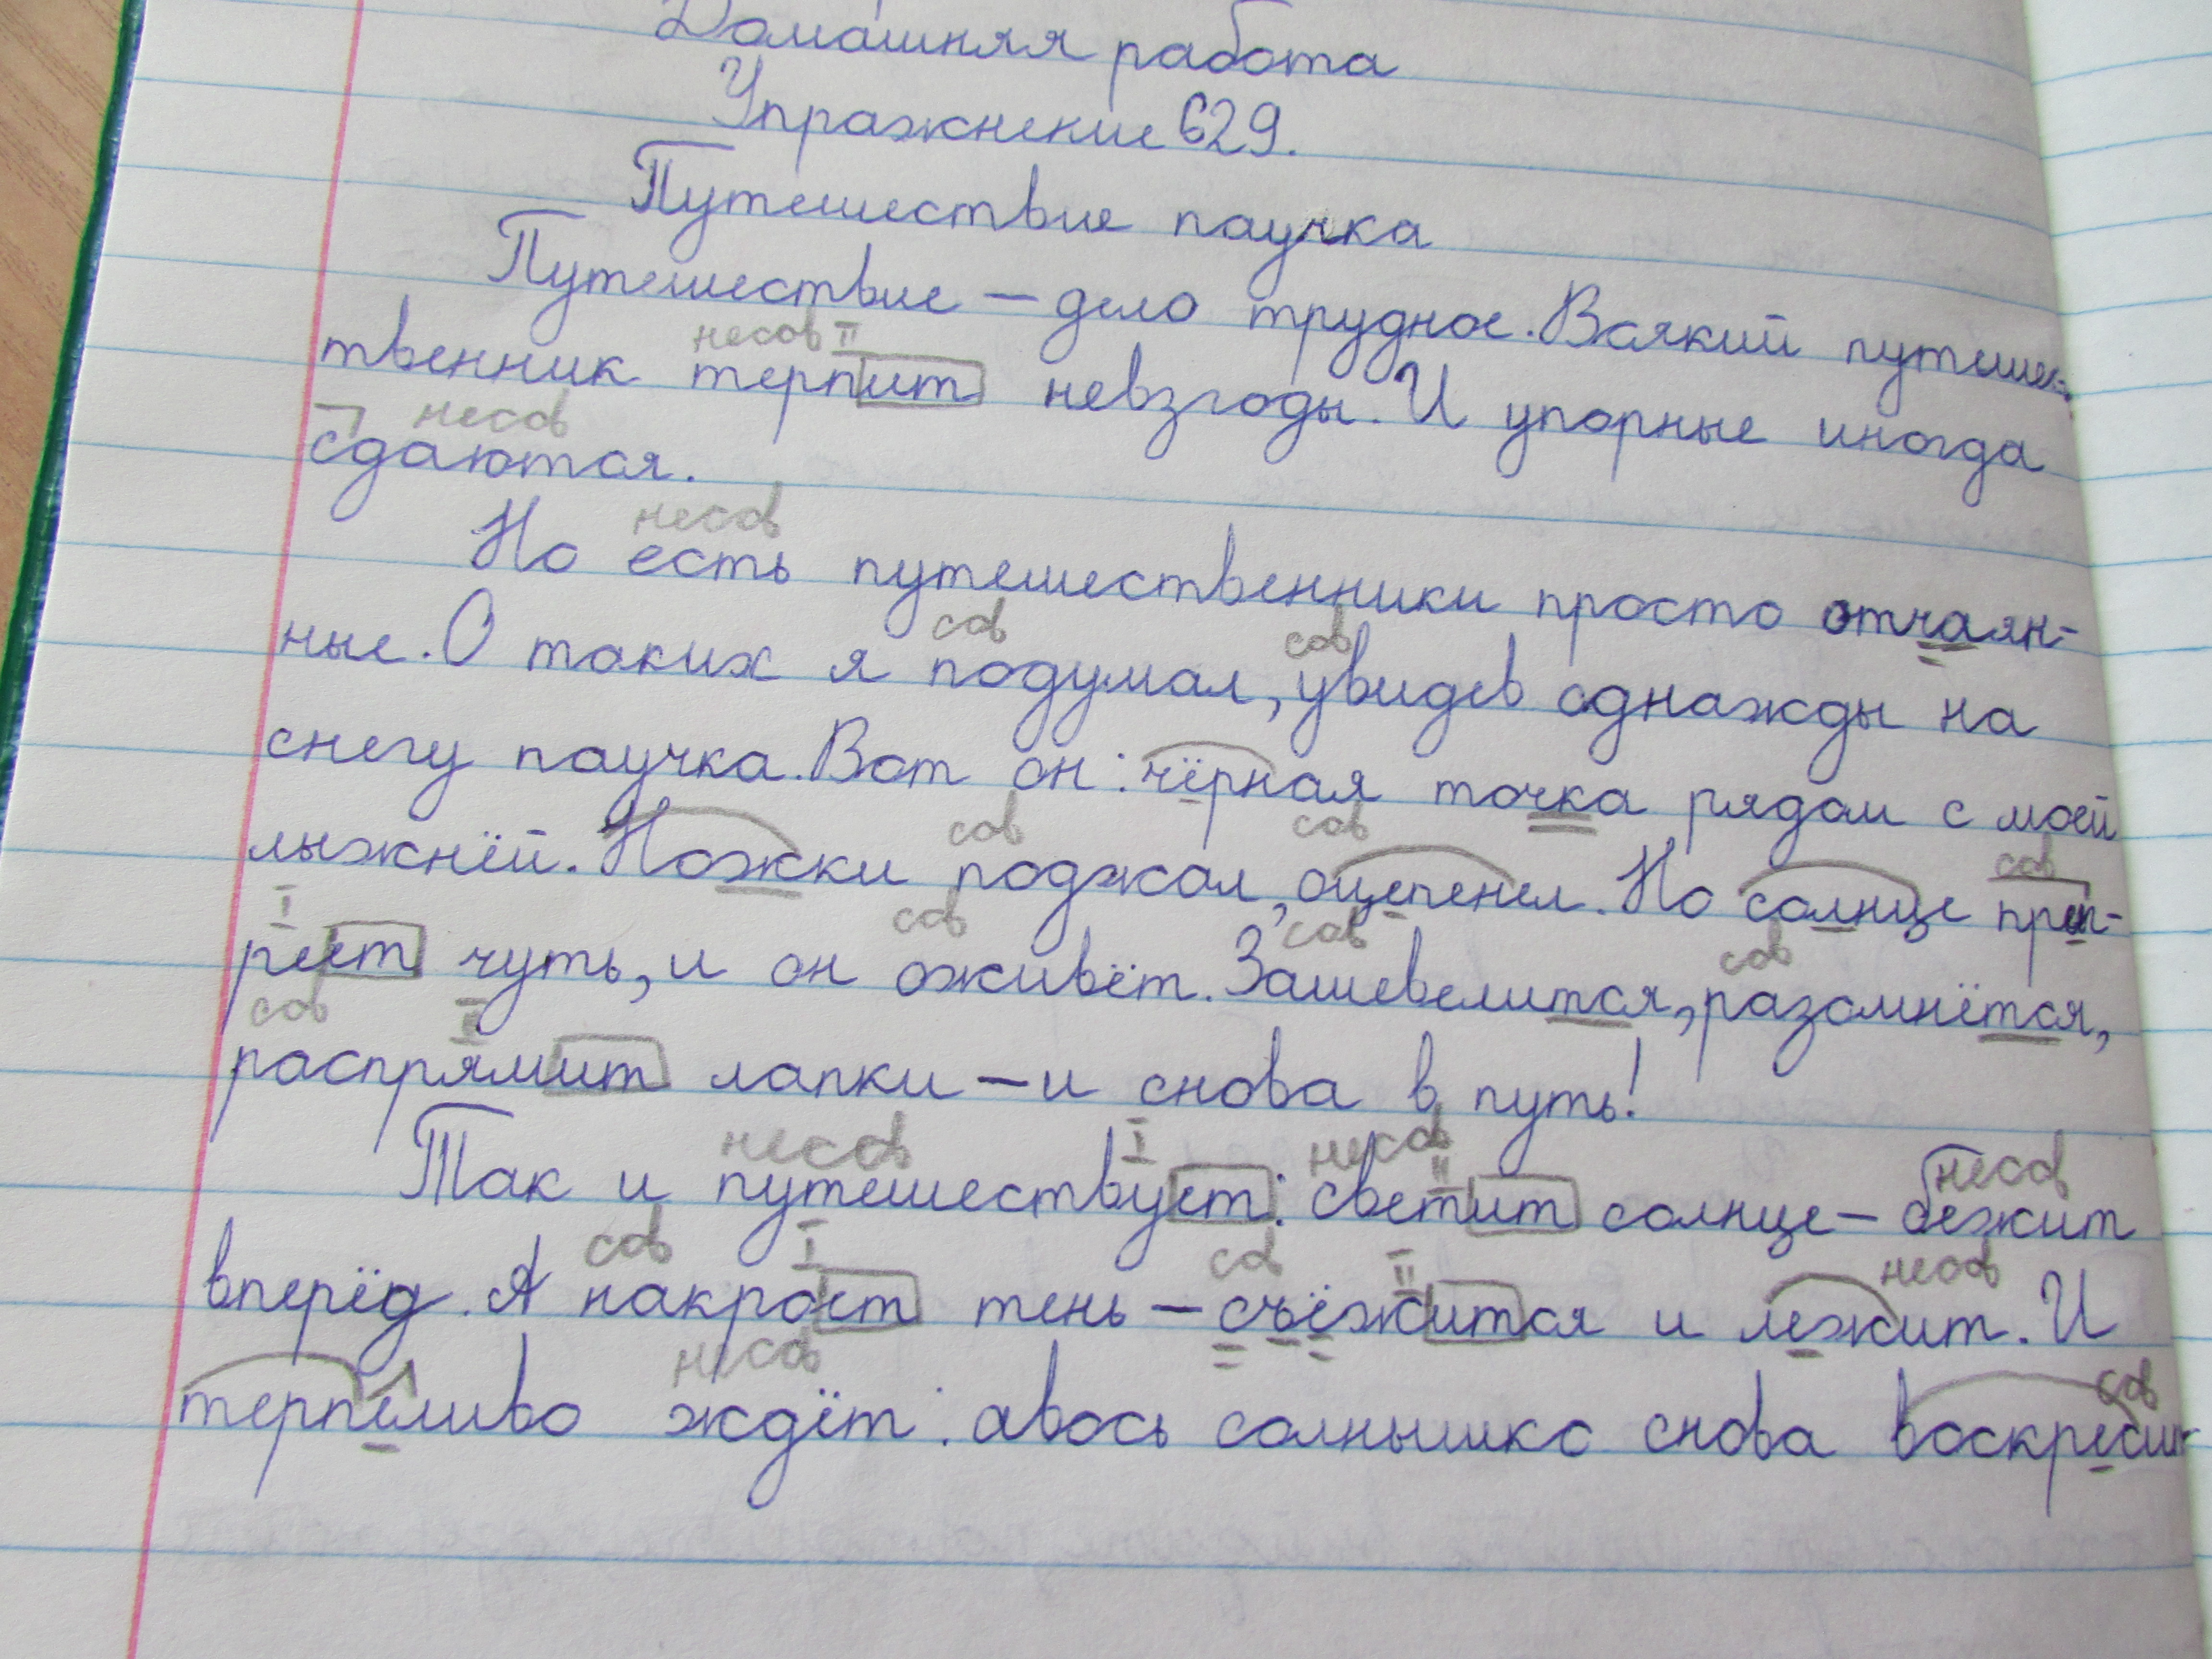 Домашняя работа
Упражнение 629.
Путешествие паучка
Путешествие – дело трудное. Всякий путешес-
несов II
твенник терпит невзгоды. И упорные иногда
несов
сдаются.
несов
Но есть путешественники просто отчаян-
сов сов
ные. О таких я подумал, увидев однажды на
снегу паучка. Вот он: чёрная точка рядом с моей
сов сов сов
лыжнёй. Ножки поджал, оцепенел. Но солнце при-
I сов сов сов
греет чуть, и он оживёт. Зашевелится, разомнётся,
сов II
распрямит лапки – и снова в путь!
несов I несов II несов
Так и путешествует: светит солнце – бежит
сов I сов II несов
вперёд. А накроет тень – съёжится и лежит. И
несов сов
терпеливо ждёт: авось солнышко снова воскресит